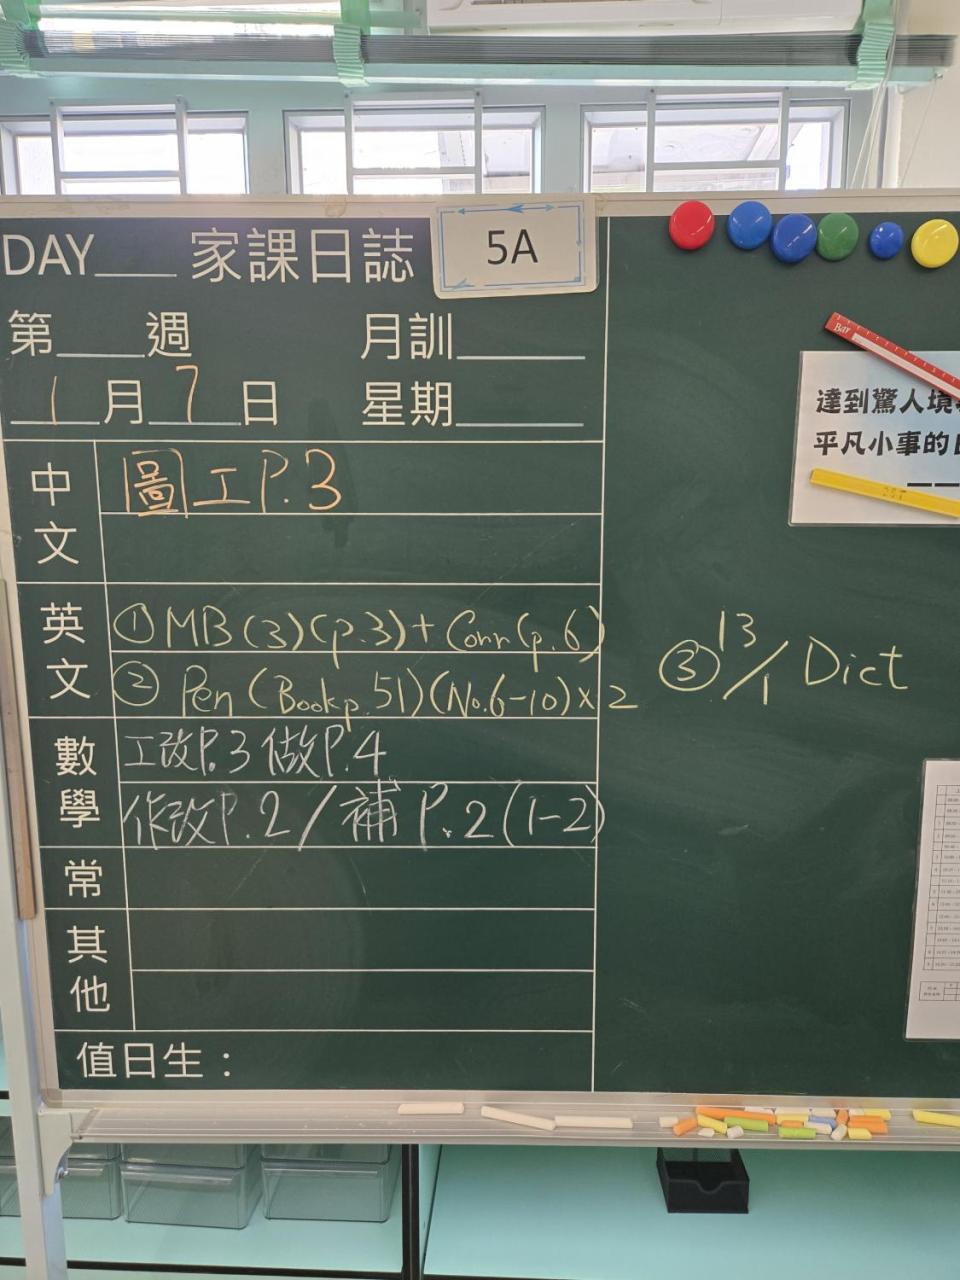 DAY___ 家課日誌
5A
第___週 月訓_____
1月7日 星期_____
中文
圖工P.3
英文
①MB(3)(p.3)+Corr(p.6)
②Pen(Book p.51)(No.6-10)×2
③13/1 Dict
數學
工改P.3做P.4
作改P.2/補P.2(1-2)
常
其他
值日生：
達到驚人境
平凡小事的